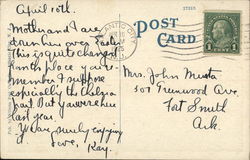 April 10th.
Mother and I are
down here over Easter
This is quite changed
month place you're
member I suppose
especially the
part. But you were here
last year.
We are surely enjoying
love, Kay.
27215
POST
CARD
1 1
Mrs. John
507 Greenwood Ave.
Fort Smith
Ark.